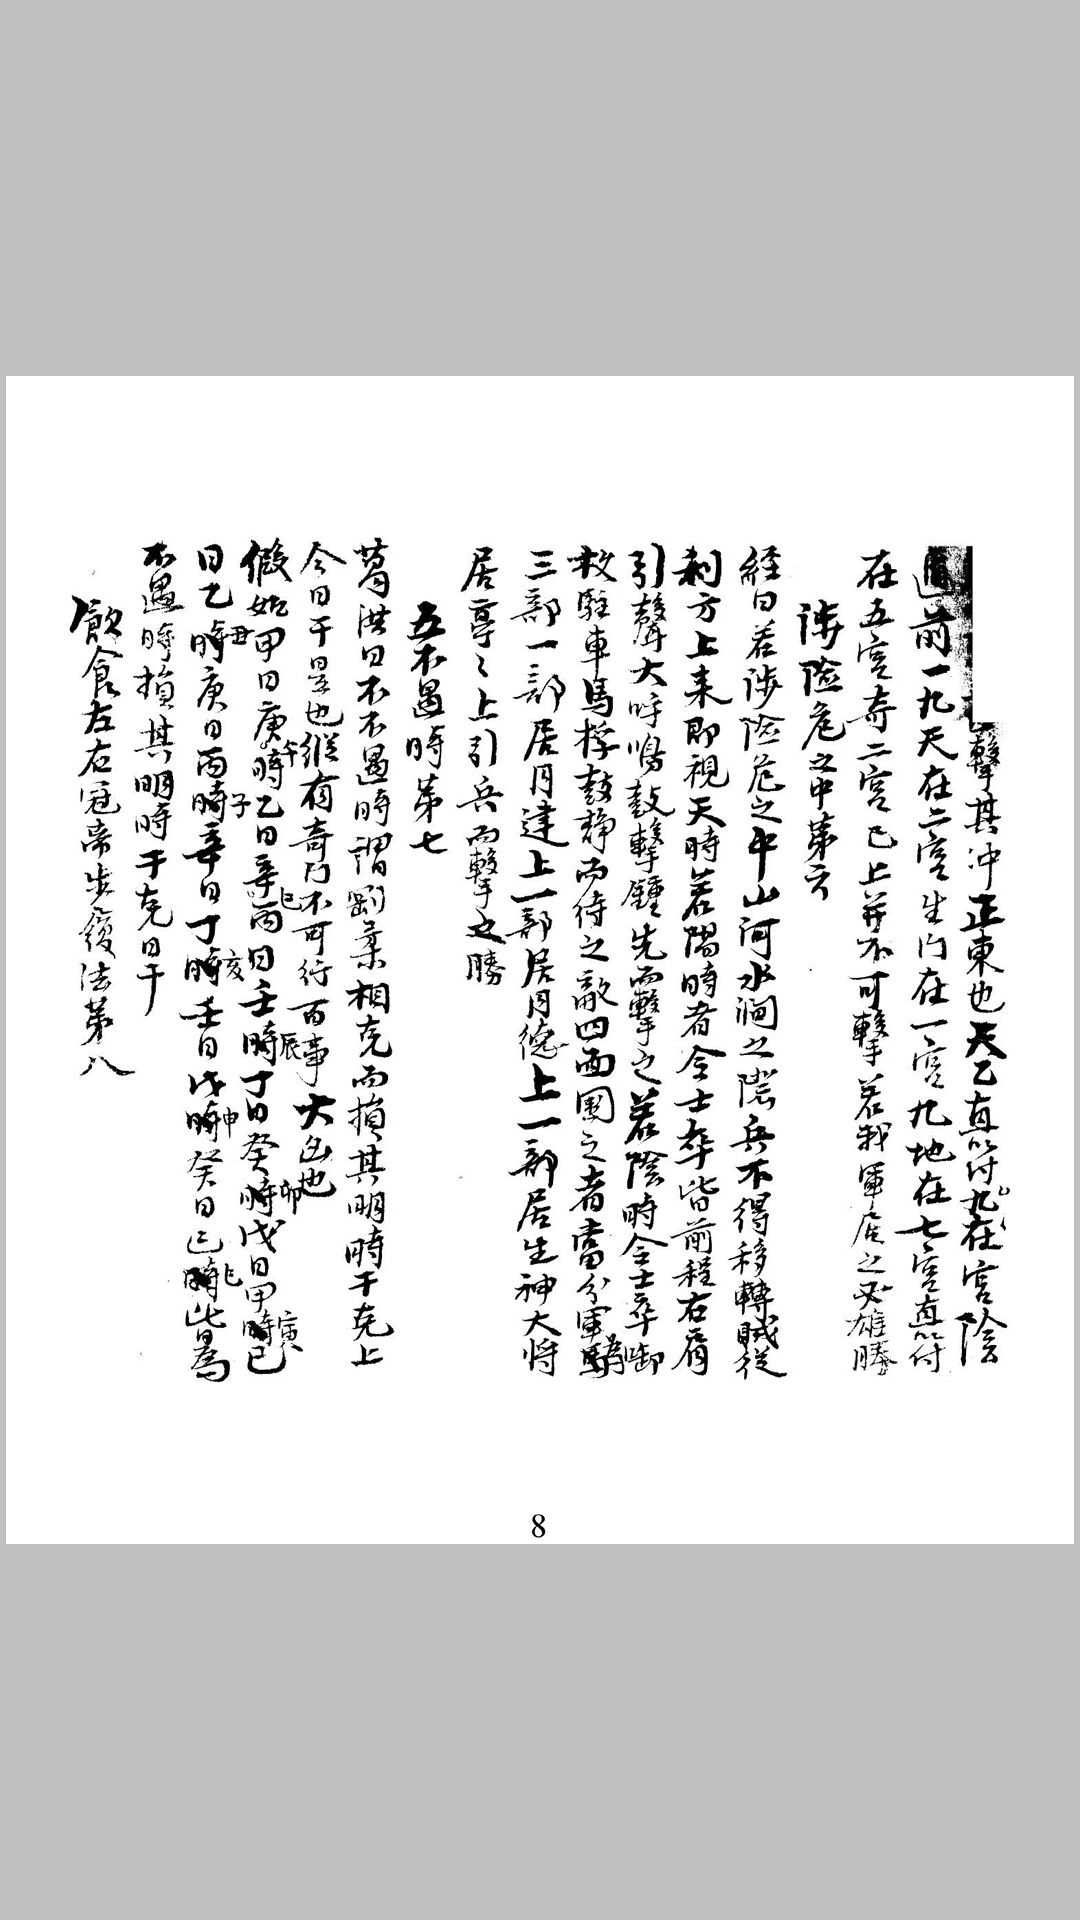 擊其冲正東也天乙直符九在宮陰
遁前一九天在二宮生门在一宮九地在七宮直符
在五宮奇二宮已上并不可擊若我軍居之必雄勝
涉險危之中第六
經曰若涉險危之中山河水澗之際兵不得移轉賊從
利方上来即視天時若陽時者令士卒皆前程右肩
引聲大呼鳴鼓擊鍾先而擊之若陰時令士卒啣
枚駐車馬桴鼓静而待之敵四面圍之者當分軍為
三部一部居月建上一部居月德上一部居生神大将
居亭〻上引兵而擊之勝
五不遇時第七
葛洪曰不不遇時謂剛柔相克而損其明時干克上
今日干是也縱有奇门不可行百事大凶也
假如甲日庚午時乙日辛巳丙日壬辰時丁日癸卯時戊日甲寅時已
日乙丑時庚日丙子時辛日丁亥時壬日戊申時癸日已巳時此爲
不遇時損其明時干克日干
飲食左右冠帶步履法第八
8